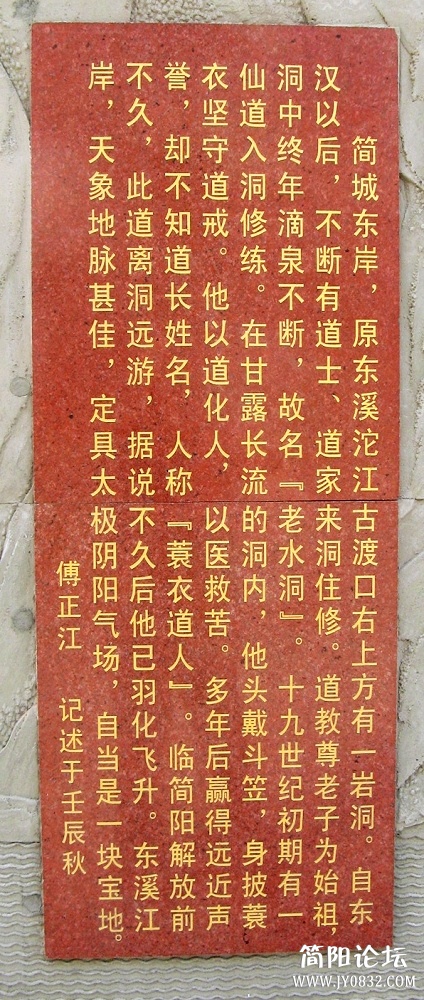 简城东岸，原东溪沱江古渡口右上方有一岩洞。自东
汉以后，不断有道士、道家来洞住修。道教尊老子为始祖，
洞中终年滴泉不断，故名『老水洞』。十九世纪初期有一
仙道入洞修练。在甘露长流的洞内，他头戴斗笠，身披蓑
衣坚守道戒。他以道化人，以医救苦。多年后赢得远近声
誉，却不知道长姓名，人称『蓑衣道人』。临简阳解放前
不久，此道离洞远游，据说不久后他已羽化飞升。东溪江
岸，天象地脉甚佳，定具太极阴阳气场，自当是一块宝地。
傅正江 记述于壬辰秋
简阳论坛
www.JY0832.com